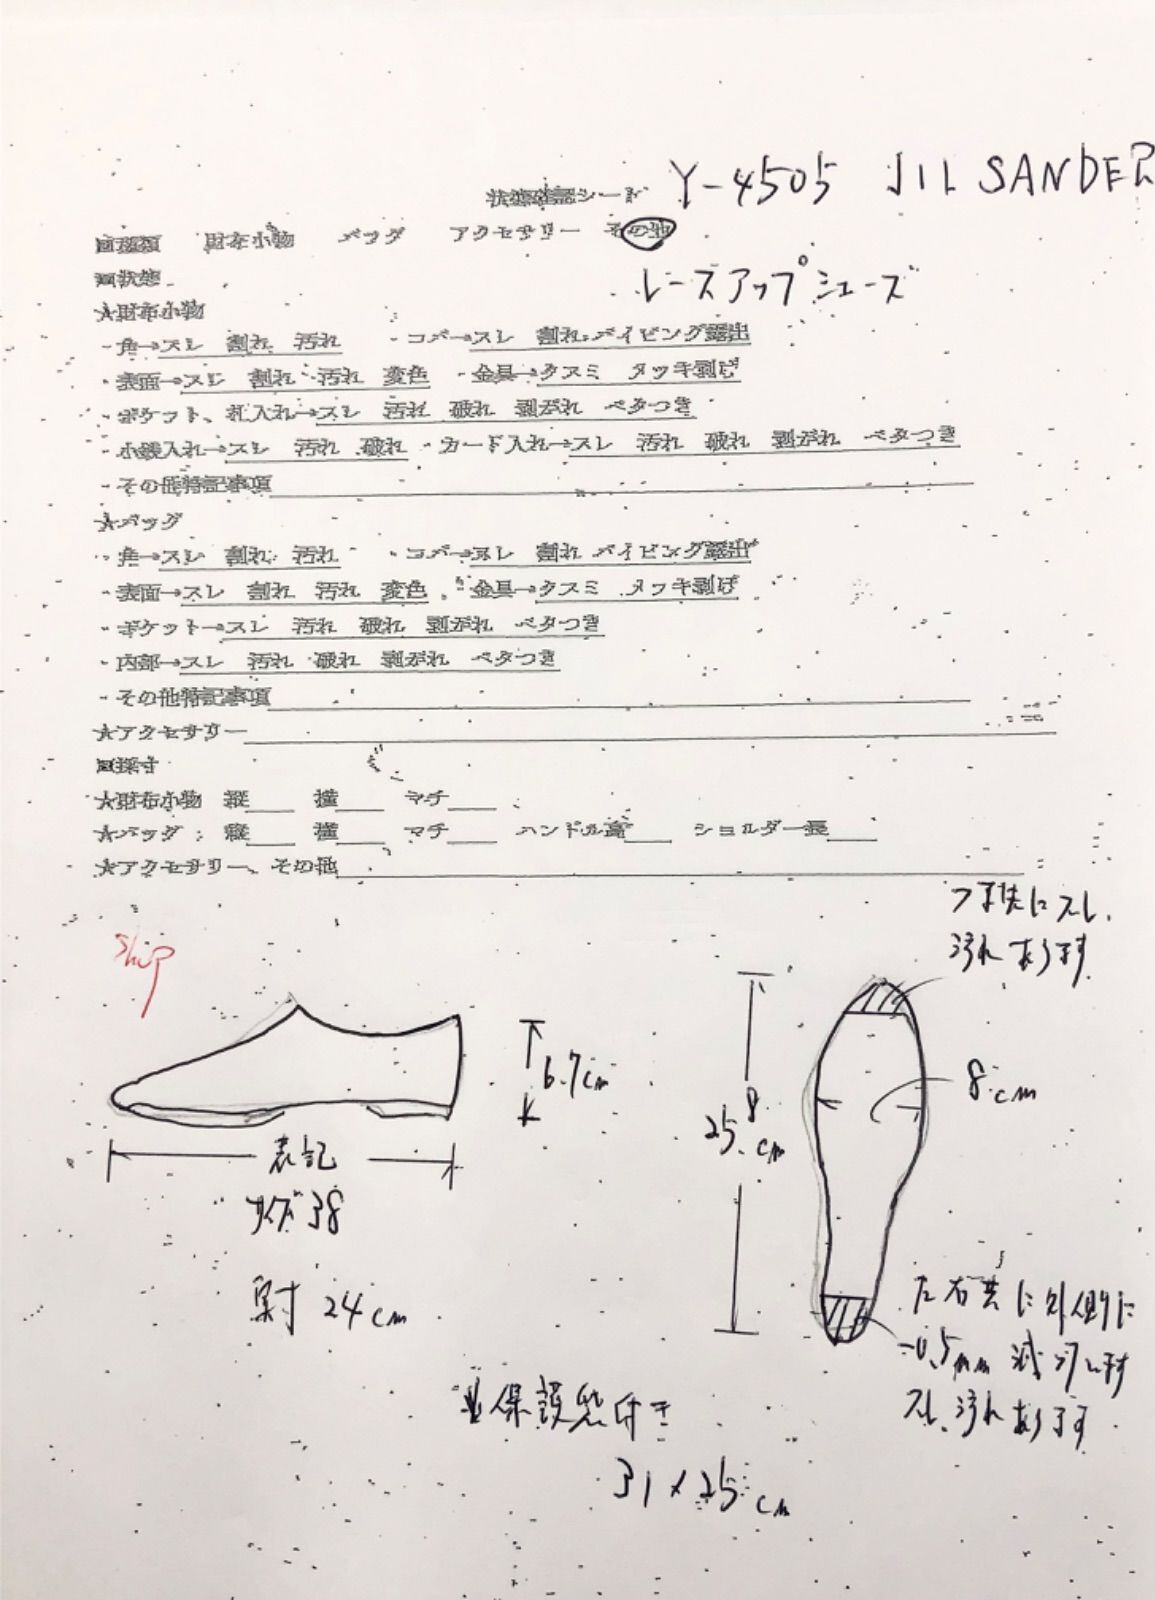 状態確認シート Y-4505 JIL SANDER
■種類 財布小物 バッグ アクセサリー その他
■状態
レースアップシューズ
★財布小物
・角→スレ 割れ 汚れ ・コバ→スレ 割れ パイピング露出
・表面→スレ 割れ 汚れ 変色 ・金具→クスミ メッキ剥げ
・ポケット、札入れ→スレ 汚れ 破れ 剥がれ ベタつき
・小銭入れ→スレ 汚れ 破れ ・カード入れ→スレ 汚れ 破れ 剥がれ ベタつき
・その他特記事項
★バッグ
・角→スレ 割れ 汚れ ・コバ→スレ 割れ パイピング露出
・表面→スレ 割れ 汚れ 変色 ・金具→クスミ メッキ剥げ
・ポケット→スレ 汚れ 破れ 剥がれ ベタつき
・内部→スレ 汚れ 破れ 剥がれ ベタつき
・その他特記事項
★アクセサリー
■採寸
★財布小物 縦 横 マチ
★バッグ: 縦 横 マチ ハンドル高 ショルダー長
★アクセサリー、その他
つま先にスレ、
汚れあります
Ship
6.7cm
8cm
25.8cm
表記
サイズ38
実寸 24cm
左右共に外側に
-0.5mm 減りします
スレ、汚れあります
保護袋付き
31×25cm